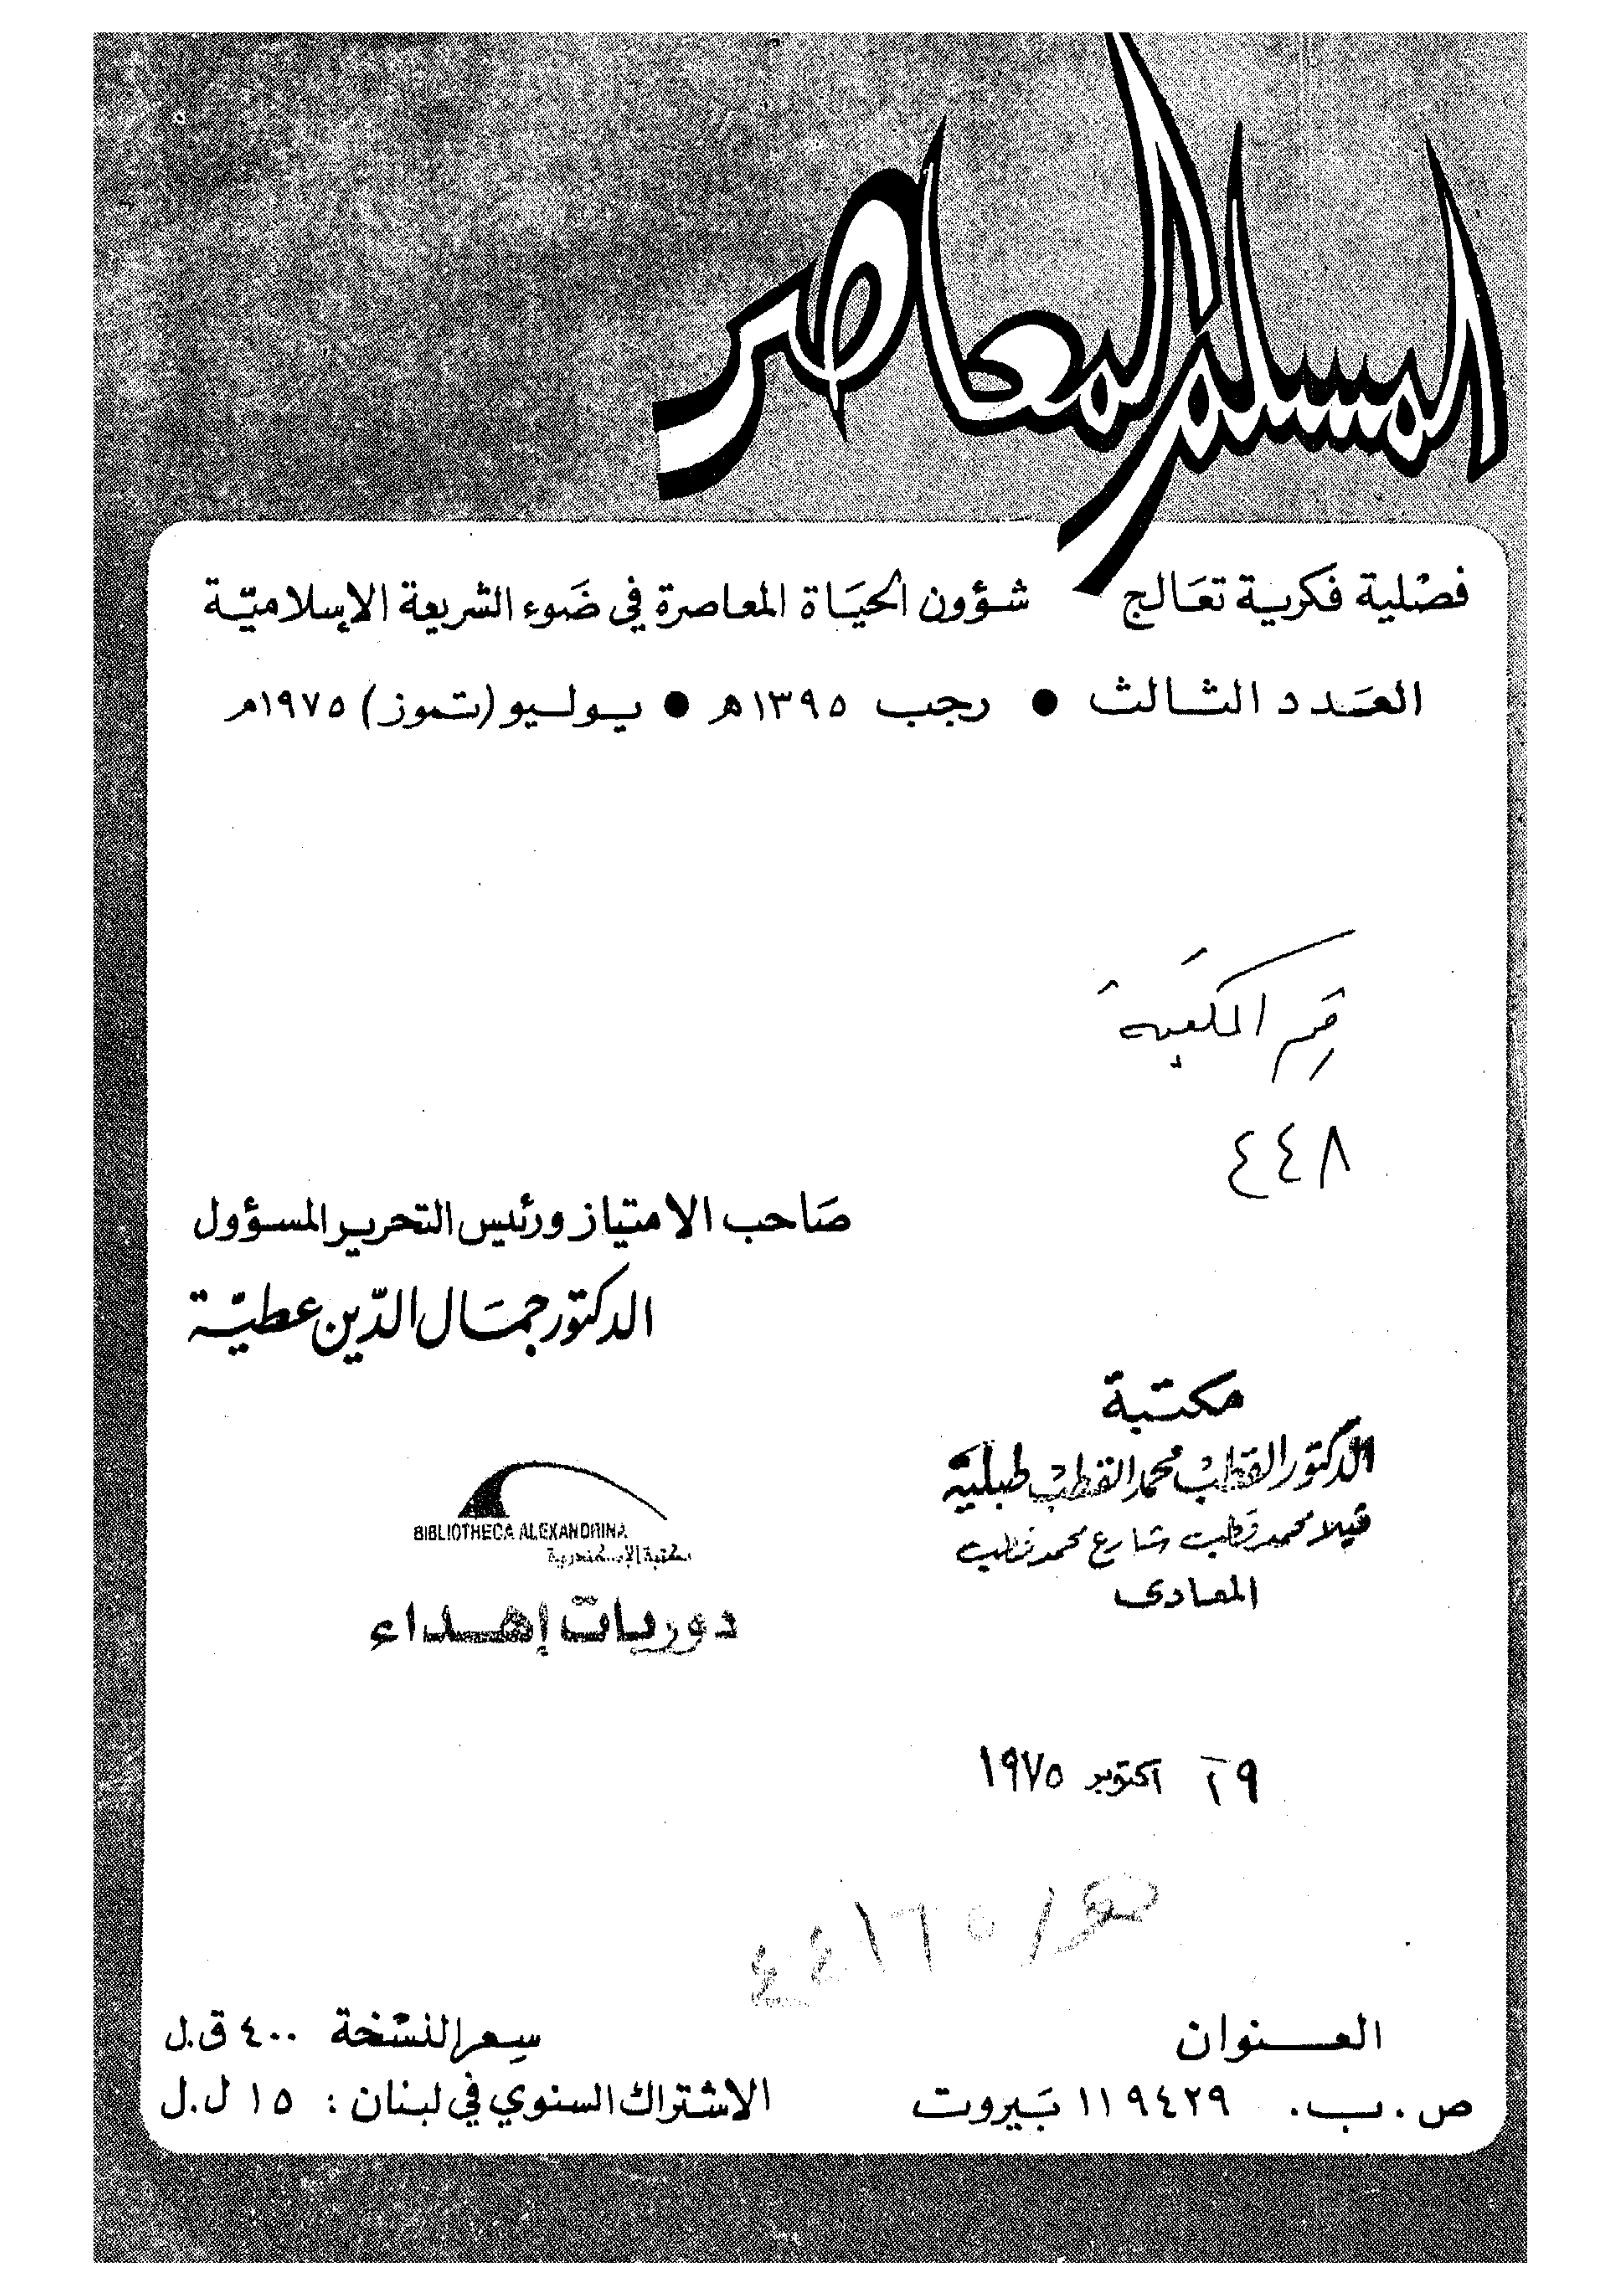 المسلم المعاصر
فصْلية فكرية تعَالج شؤون الحيَاة المعاصرة في ضَوء الشريعة الإسلاميّة
العَدد الثالث ● رجب ١٣٩٥ه ● يوليو (تموز) ١٩٧٥م
المكتبة
٤٤٨
صَاحب الامتياز ورئيس التحرير المسؤول
الدكتور جمَال الدّين عطيّة
مكتبة
الدكتور القطب محمد القطب طبلية
فيلا محمد قطب شارع محمد قطب
المعادى
BIBLIOTHECA ALEXANDRINA
مكتبة الإسكندرية
دوريات إهداء
٢٩ اكتوبر ١٩٧٥
العنوان
ص.ب. ١١٩٤٢٩ بَيروت
سِعر النسْخة ٤٠٠ ق.ل
الاشتراك السنوي في لبنان : ١٥ ل.ل